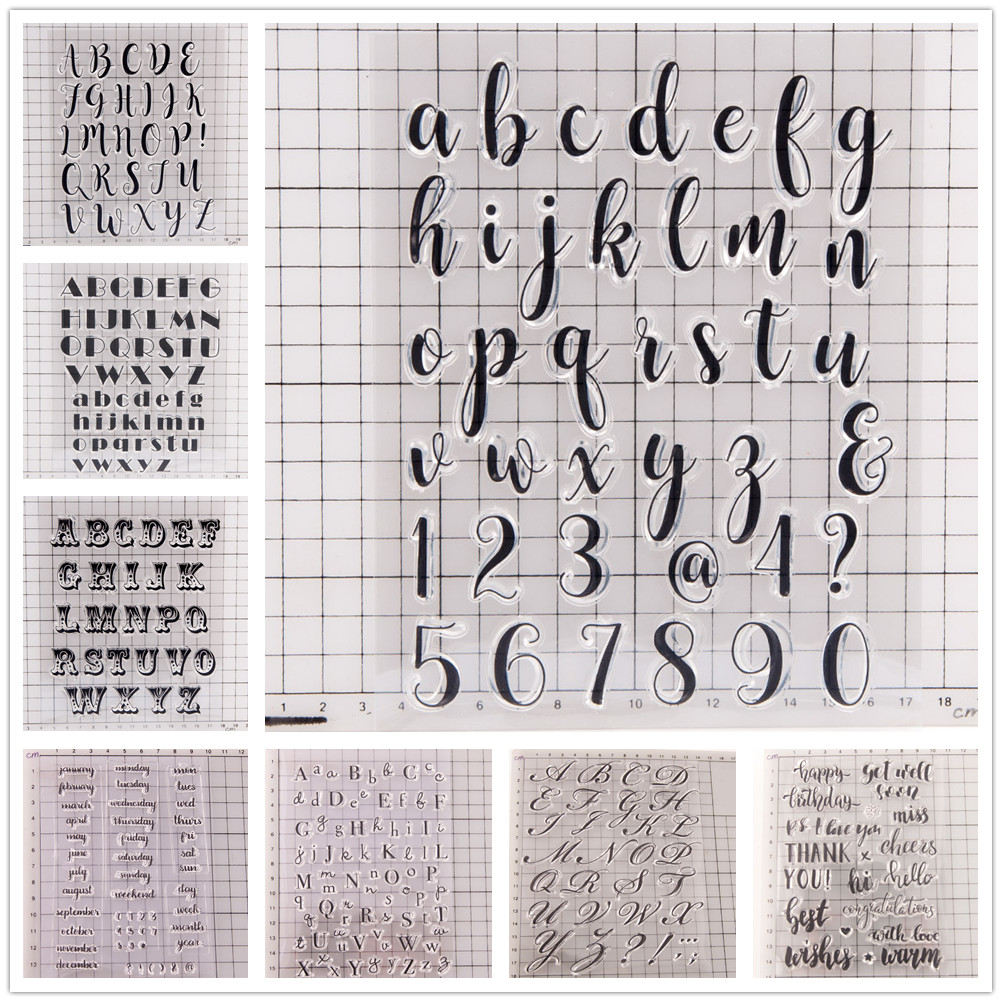 A B C D E
F G H I J K
L M N O P !
Q R S T U
V W X Y Z
A B C D E F G
H I J K L M N
O P Q R S T U
V W X Y Z
a b c d e f g
h i j k l m n
o p q r s t u
v w x y z
A B C D E F
G H I J K
L M N P Q
R S T U V O
W X Y Z
a b c d e f g
h i j k l m n
o p q r s t u
v w x y z &
1 2 3 @ 4 ?
5 6 7 8 9 0
2 4 6 8 10 12 14 16 18
cm
cm 1 2 3 4 5 6 7 8 9 10 11 12
january monday mon
february tuesday tues
march wednesday wed
april thursday thurs
may friday fri
june saturday sat
july sunday sun
august weekend day
september 0 1 2 3 week
october 4 5 6 7 month
november 8 9 year
december ? ! ( ) & @
A a a B b b C c c
d d D e e E f f F
G g g H h h i I i
j j J k k K l l L
M m m N n n O o o P p p
q q Q r r R s s S t T
t U u u V v v W w w
X x x Y y y Z z z
A B C D
E F G H
I J K L
M N O P
Q R S T
U V W X
Y Z ? ! , ;
happy
birthday
get well
soon
P.S. I love you
miss
THANK x
YOU!
cheers
hi hello
best
wishes
congratulations
with love
warm